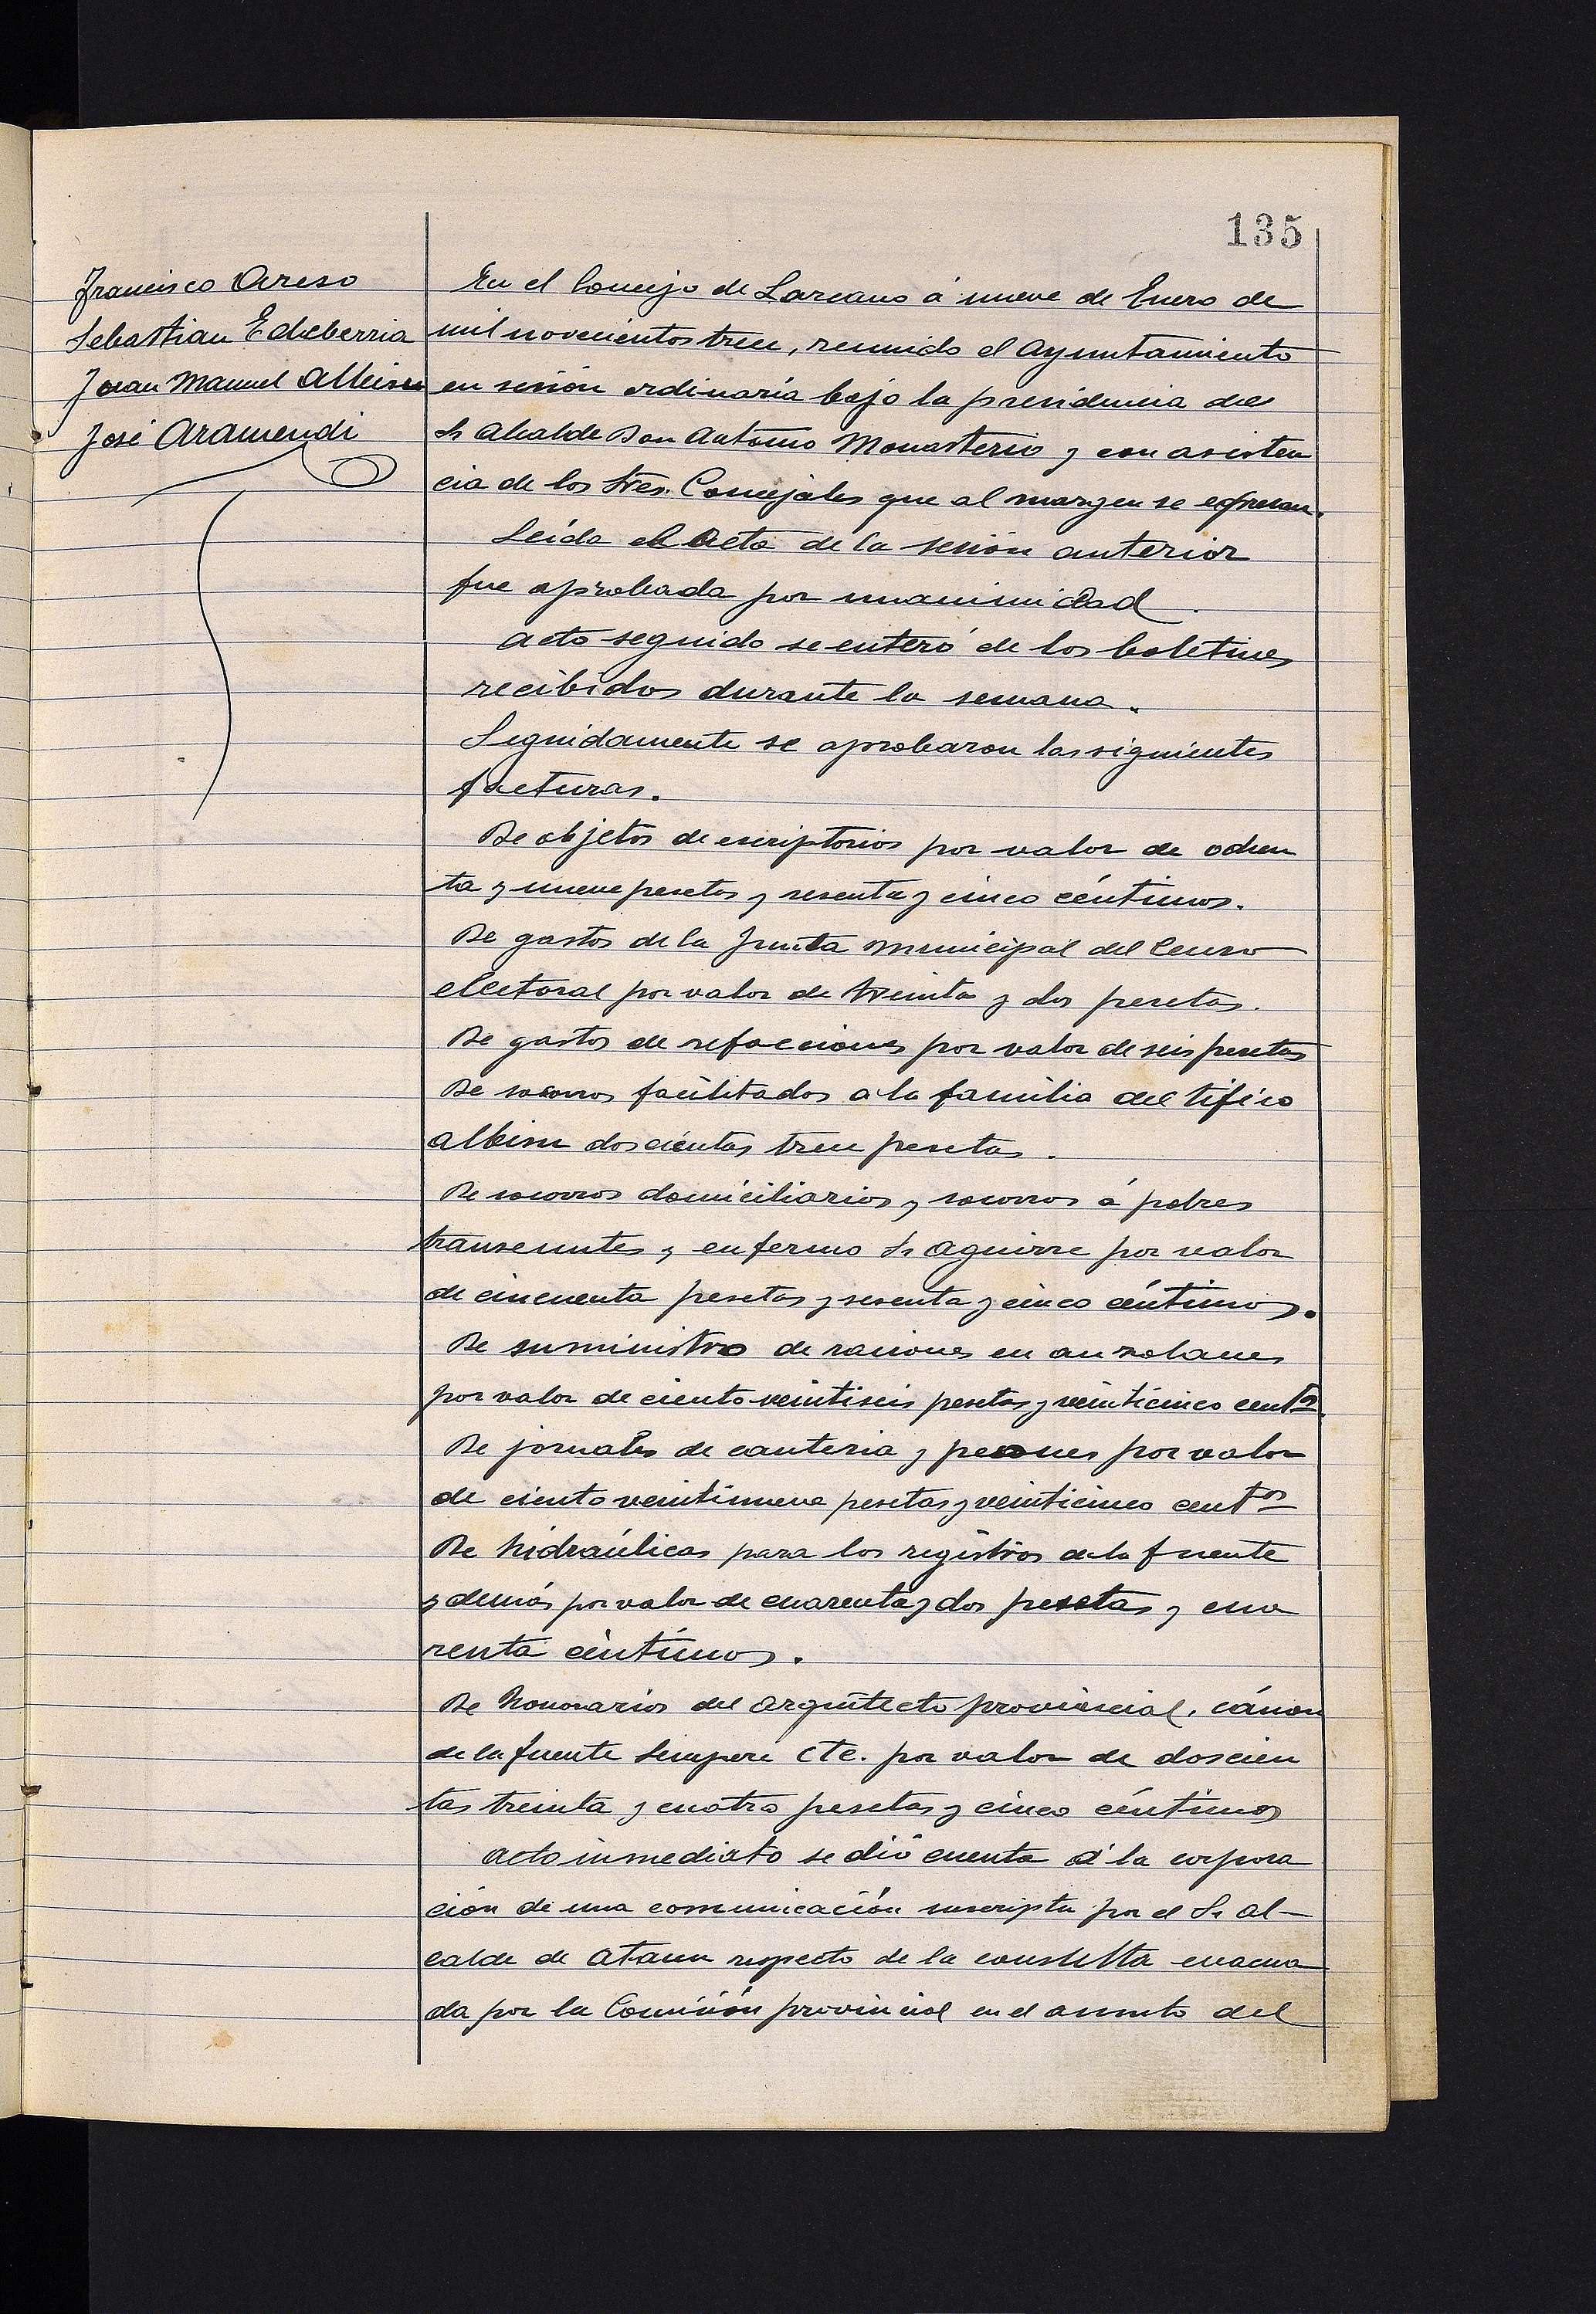 135
Francisco Areso
Sebastian Echeberria
Juan Manuel Albisu
José Aramendi
En el Concejo de Lazcano á nueve de Enero de
mil novecientos trece, reunido el Ayuntamiento
en sesión ordinaria bajo la presidencia del
Sr Alcalde Don Antonio Monasterio y con asisten
cia de los Sres. Concejales que al margen se expresan.
Leída el Acta de la sesión anterior
fue aprobada por unanimidad.
Acto seguido se enteró de los boletines
recibidos durante la semana.
Seguidamente se aprobaron las siguientes
facturas.
De objetos de escriptorios por valor de ochen
ta y nueve pesetas y sesenta y cinco céntimos.
De gastos de la Junta municipal del Censo
electoral por valor de treinta y dos pesetas.
De gastos de refacciones por valor de seis pesetas
De socorros facilitados a la familia del tífico
Albisu doscientas trece pesetas.
De socorros domiciliarios y socorros á pobres
transeuntes y enfermo Sr Aguirre por valor
de cincuenta pesetas y sesenta y cinco céntimos.
De suministro de raciones en auzolanes
por valor de ciento veintiseis pesetas y veinticinco centos.
De jornales de canteria y peones por valor
de ciento veintinueve pesetas y veinticinco centos
De hidraúlicas para los registros de la fuente
y demás por valor de cuarenta y dos pesetas y cua
renta céntimos.
De honorarios del Arquitecto provincial, cánon
de la fuente Sempere etc. por valor de doscien
tas treinta y cuatro pesetas y cinco céntimos
Acto inmediato se dió cuenta á la corpora
ción de una comunicación suscripta por el Sr Al-
calde de Ataun respecto de la consulta evacua
da por la Comisión provincial en el asunto del